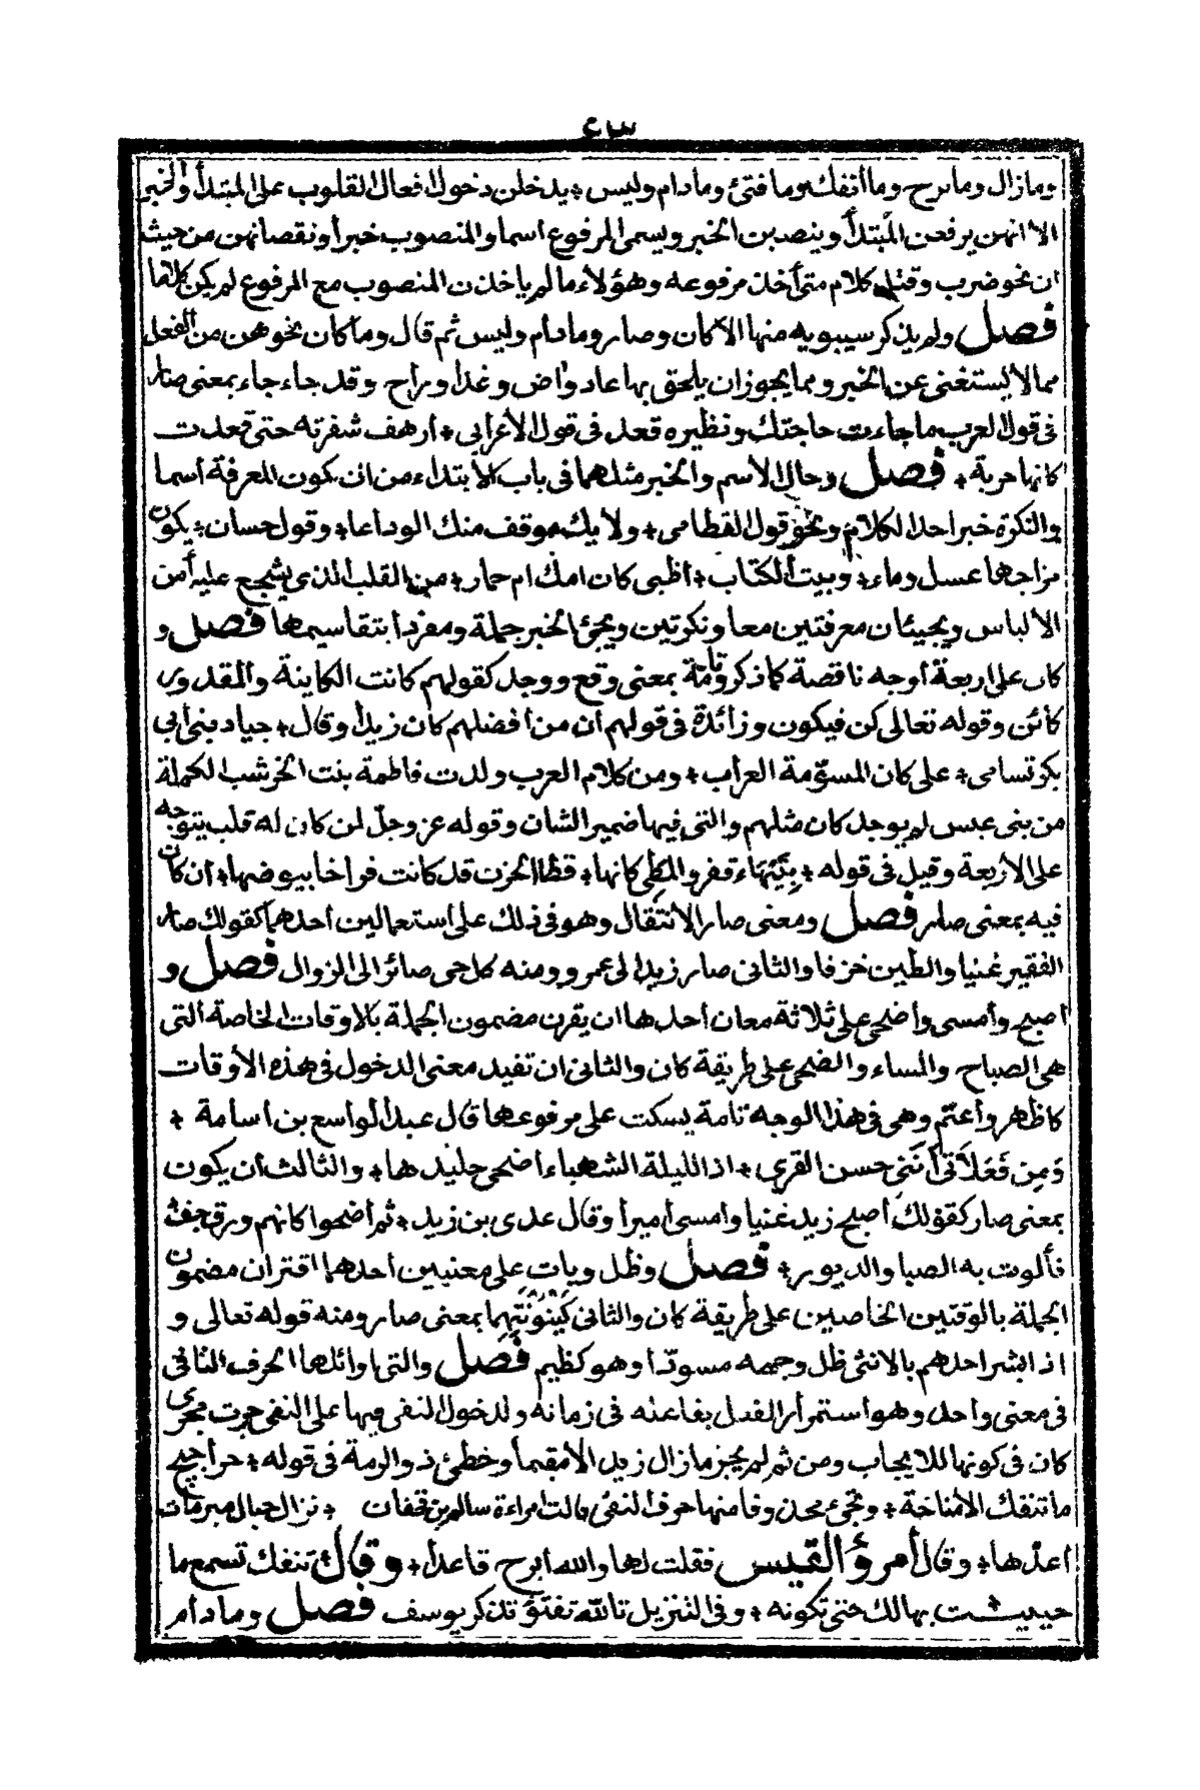 ٤٣
وما زال وما برح وما أنفك وما فتئ وما دام وليس * يدخلن دخول افعال القلوب على المبتدأ والخبر
الا انهن يرفعن المبتدأ وينصبن الخبر ويسمى المرفوع اسما والمنصوب خبرا ونقصانهن من حيث
ان نحو ضرب وقتل كلام متى أخذ مرفوعه وهؤلاء ما لم ياخذن المنصوب مع المرفوع لم يكن كلاما
فصل ولم يذكر سيبويه منها الا كان وصار وما دام وليس ثم قال وما كان نحوهن من الفعل
مما لا يستغنى عن الخبر ومما يجوز ان يلحق بها عاد واض وغدا وراح وقد جاء جاء بمعنى صار
فى قول العرب ما جاءت حاجتك ونظيره قعد فى قول الأعرابى * أرهف شفرته حتى قعدت
كانها حربة * فصل وحال الاسم والخبر مثلهما فى باب الابتداء من ان كون المعرفة اسما
والنكرة خبرا حد الكلام ونحو قول القطامى * ولا يك موقف منك الوداعا * وقول حسان * يكون
مزاجها عسل وماء * وبيت الكتاب * أظبى كان امك ام حمار * من القلب الذى يشجع عليه أمن
الالباس ويجيئان معرفتين معا ونكرتين ويجئ الخبر جملة ومفردا بتقاسيمها فصل و
كان على اربعة أوجه ناقصة كما ذكر وتامة بمعنى وقع ووجد كقولهم كانت الكاينة والمقدور
كائن وقوله تعالى كن فيكون وزائدة فى قولهم ان من أفضلهم كان زيدا وقال * جياد بنى أبى
بكر تسامى * على كان المسوّمة العراب * ومن كلام العرب ولدت فاطمة بنت الخرشب الكملة
من بنى عبس لم يوجد كان مثلهم والتى فيها ضمير الشان وقوله عز وجلّ لمن كان له قلب يتوجه
على الأربعة وقيل فى قوله * بِتَيْهَاء قفر والمطى كانها * قطا الحزن قد كانت فراخا بيوضها * ان كان
فيه بمعنى صار فصل ومعنى صار الانتقال وهو فى ذلك على استعمالين احدهما كقولك صار
الفقير غنيا والطين خزفا والثانى صار زيد الى عمرو ومنه كل حى صائر الى الزوال فصل و
اصبح وأمسى وأضحى على ثلاثة معان أحدها ان يقرن مضمون الجملة بالاوقات الخاصة التى
هى الصباح والمساء والضحى على طريقة كان والثانى ان تفيد معنى الدخول فى هذه الأوقات
كاظهر وأعتم وهى فى هذا الوجه تامة يسكت على مرفوعها قال عبد الواسع بن اسامة *
وَمِن فَعَلاَتى أنَنى حسن القرى * اذا الليلة الشهباء اضحى جليدها * والثالث أن يكون
بمعنى صار كقولك أصبح زيد غنيا وامسى أميرا وقال عدى بن زيد * ثم أضحوا كانهم ورق جف
فألوت به الصبا والدبور * فصل وظل وبات على معنيين احدهما اقتران مضمون
الجملة بالوقتين الخاصين على طريقة كان والثانى كَيْنُونَتِهِما بمعنى صار ومنه قوله تعالى و
اذا بشر احدهم بالانثى ظل وجهه مسودّا وهو كظيم فصل والتى اوائلها الحرف النافى
فى معنى واحد وهو استمرار الفعل بفاعله فى زمانه ولدخول النفى فيها على النفى جرت مجرى
كان فى كونها للايجاب ومن ثم لم يجز ما زال زيد الا مقيما وخطئ ذو الرمة فى قوله * حراجيج
ما تنفك الا مناخة * وتجئ محذوفا منها حرف النفى قالت امراءة سالم بن قحفان * تزال حبال مبرمات
اعدّها * وقال أمرؤ القيس فقلت لها والله ابرح قاعدا * وقال * تنفك تسمع ما
حييت بهالك حتى تكونه * وفى التنزيل تالله تفتؤ تذكر يوسف فصل وما دام